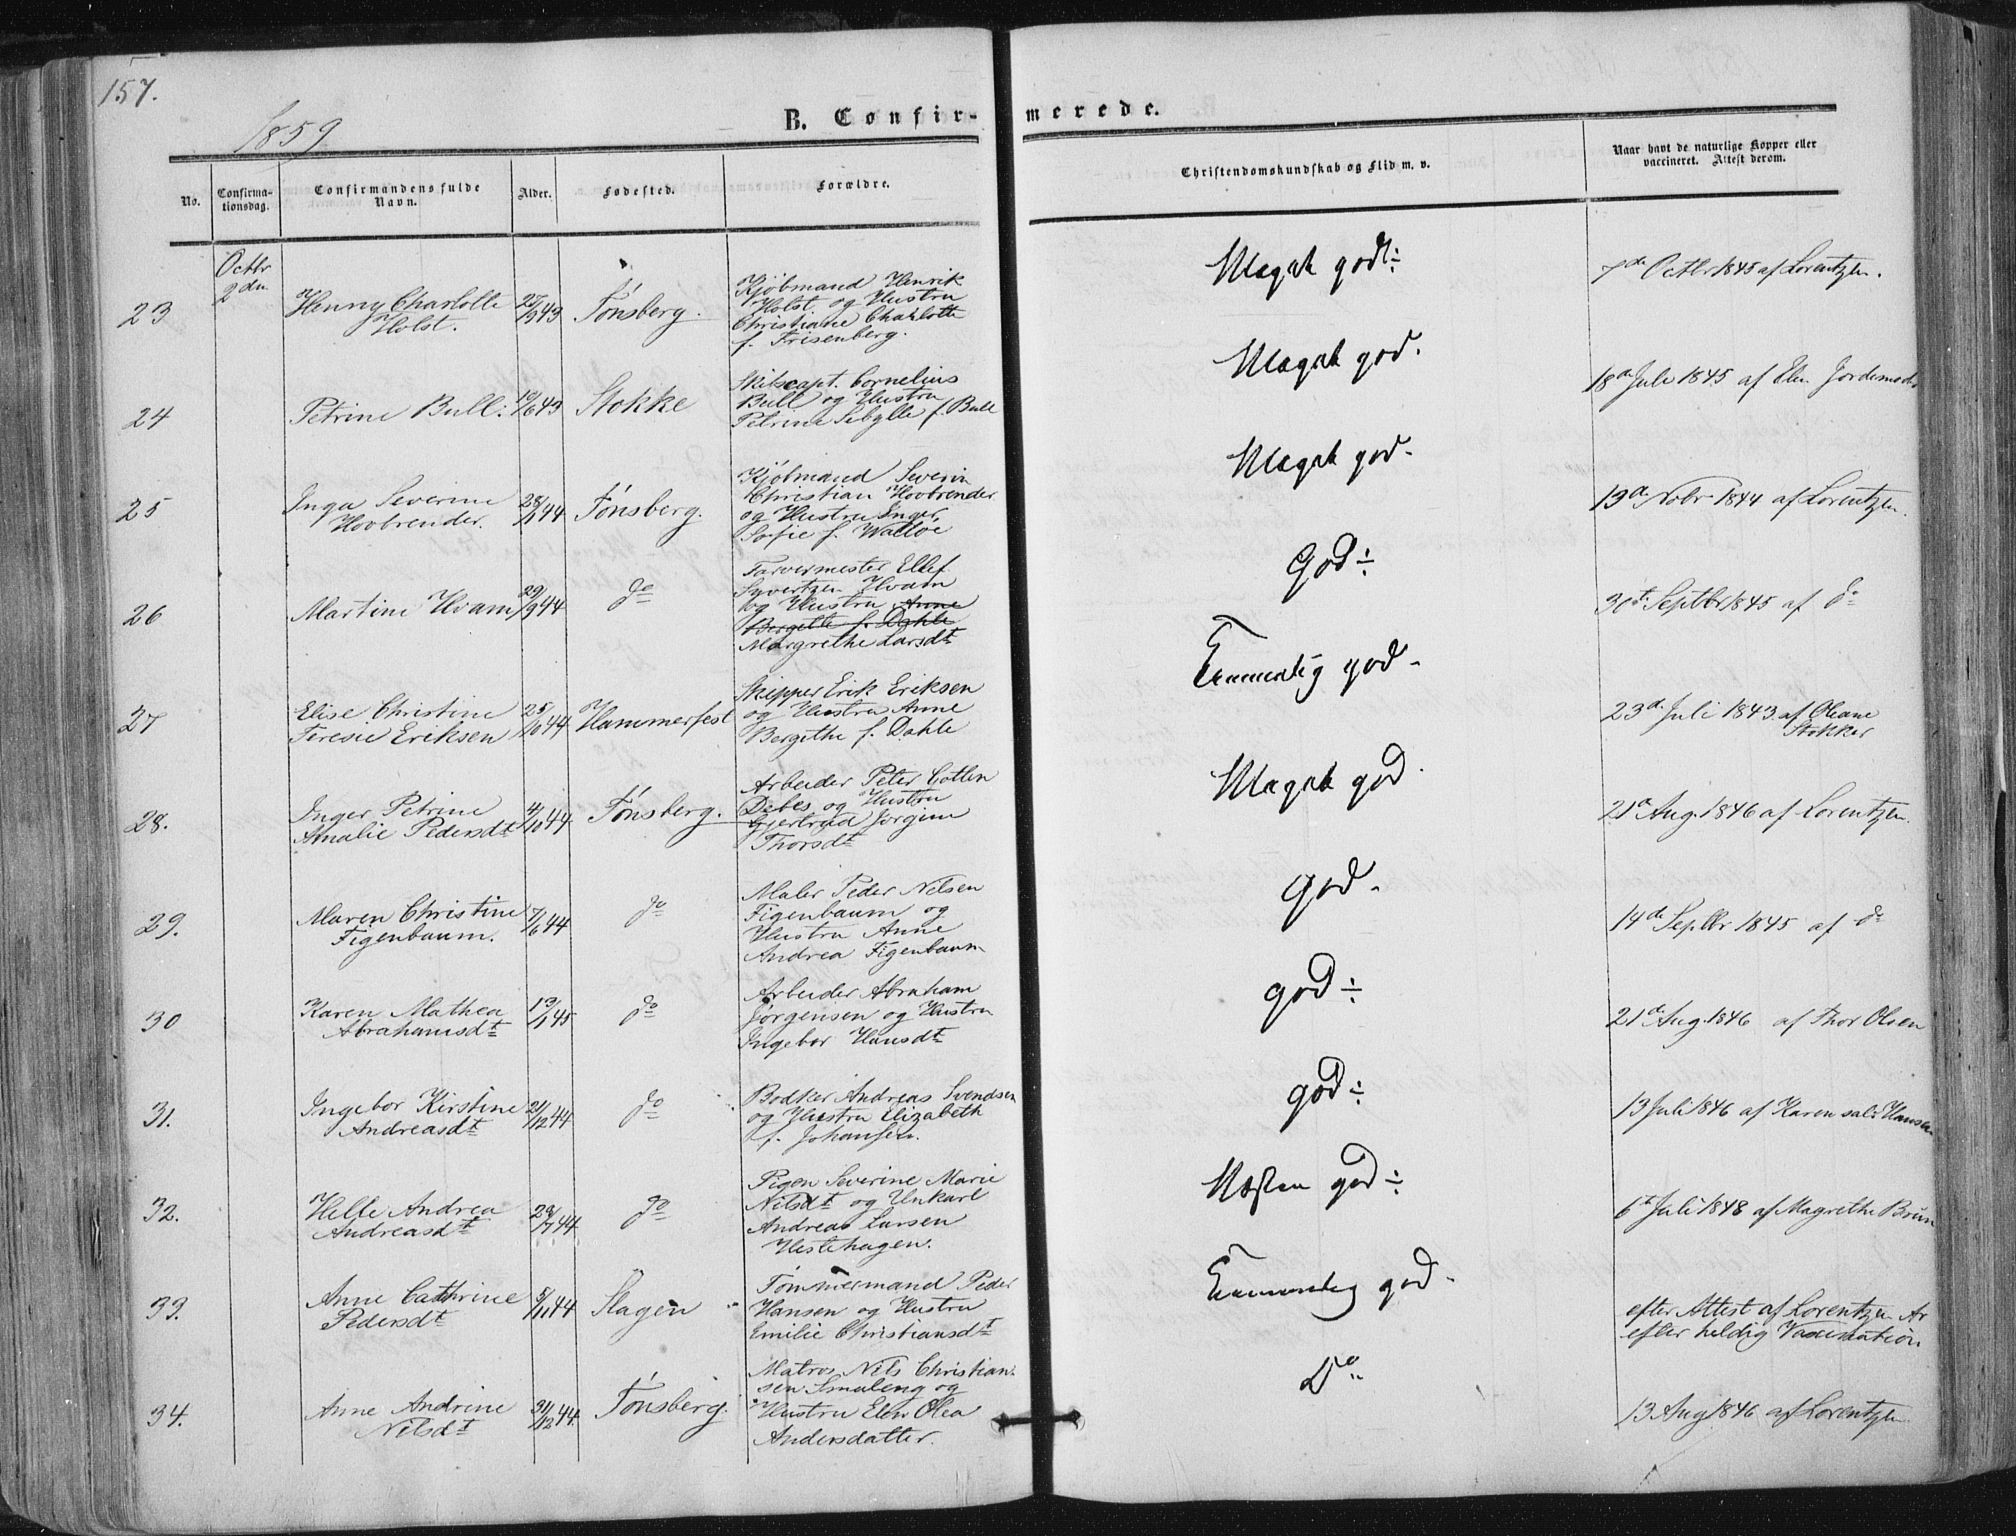 157.
1859
B. Confir-
merede.
No.
Confirma-
tionsdag.
Confirmandens fulde
Navn.
Alder.
Fødested.
Forældre.
Christendomskundskab og Flid m. v.
Naar havt de naturlige Kopper eller
vaccineret. Attest derom.
Octbr
2den
23
Henny Charlotte
Holst.
27/9 43
Tønsberg.
Kjøbmand Henrik
Holst og Hustru
Christiane Charlotte
f. Frisenberg.
Meget godt ÷
7de Octbr 1845 af Lorentzen.
24
Petrine Bull.
10/6 43
Stokke
Skibscapt. Cornelius
Bull og Hustru
Petrine Sibylle f. Bull
Meget god.
18de Juli 1845 af Elen Jordemoder
25
Inga Severine
Hovbrender.
28/1 44
Tønsberg.
Kjøbmand Severin
Christian Hovbrender
og Hustru Inger
Sofie f. Walløe
Meget god.
19de Nobr 1844 af Lorentzen.
26
Martine Hvam
29/9 44
do
Farvermester Ellef
Syvertzen Hvam
og Hustru Anne
Bergethe f. Dahle
Margrethe Larsdt
God ÷
30te Septbr 1845 af do
27
Elise Christine
Firesie Eriksen
25/10 44
Hammerfest
Skipper Erik Eriksen
og Hustru Anne
Bergithe f. Dahle
Temmelig god.
23de Juli 1843 af Oleane
Stokker
28.
Inger Petrine
Amalie Pedersdt
4/10 44
Tønsberg.
Arbeider Peter Cotlen
Debes og Hustru
Gjertrud Jørgine
Thorsdt
Meget god.
21de Aug. 1846 af Lorentzen.
29.
Maren Christine
Figenbaum.
7/6 44
do
Maler Peder Nilsen
Figenbaum og
Hustru Anne
Andrea Figenbaum
God.
14de Septbr 1845 af do
30
Karen Mathea
Abrahamsdt
13/1 45
do
Arbeider Abraham
Jørgensen og Hustru
Ingebor Hansdt
god ÷
21de Aug. 1846 af Thor Olsen
31.
Ingebor Kirstine
Andreasdt
21/12 44
do
Bødker Andreas Svendsen
og Hustru Elizabeth
f. Johansen.
god ÷
13 Juli 1846 af Karen sal: Hansen
32.
Helle Andrea
Andreasdt
29/7 44
do
Pigen Severine Marie
Nilsdt og Unkarl
Andreas Larsen
Hestehagen.
Næsten god ÷
6te Juli 1848 af Magrethe Bruun
33.
Anne Cathrine
Pedersdt
5/11 44
Slagen
Tømmermand Peder
Hansen og Hustru
Emilie Christiansdt
Temmelig god.
efter Attest af Lorentzen Ar
efter heldig Vaccination
34.
Anne Andrine
Nilsdt
31/12 44.
Tønsberg.
Matros Nils Christian-
sen Smaleng og
Hustru Elen Olea
Andersdatter.
Do
13 Aug 1846 af Lorentzen